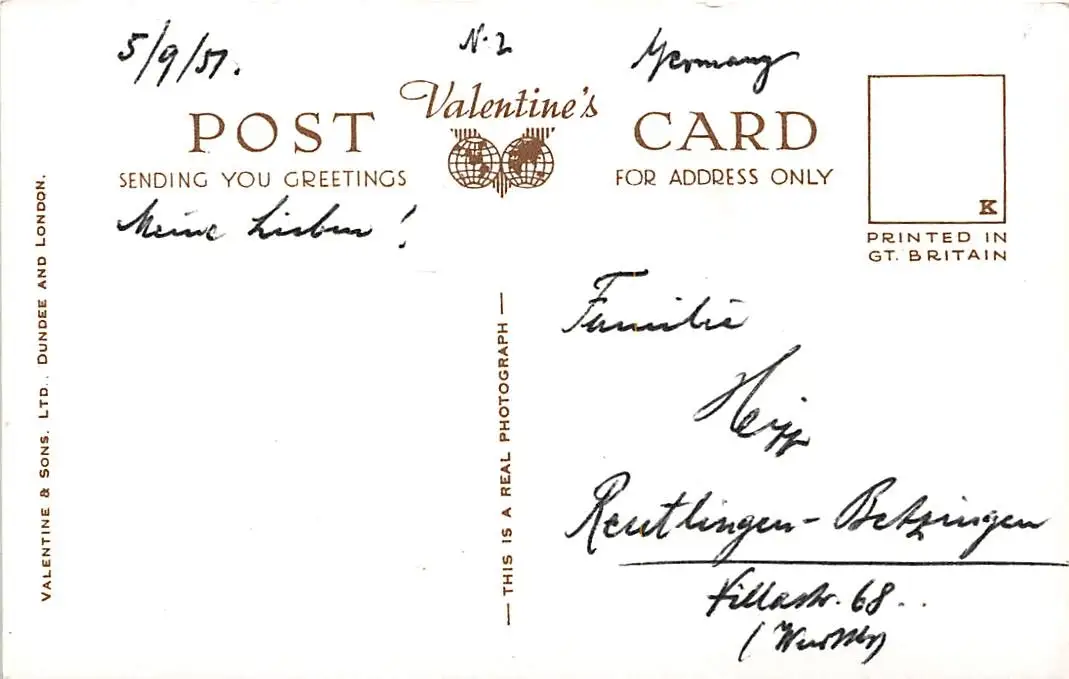 5/9/51.
N. 2
Germany
Valentine's
POST CARD
SENDING YOU GREETINGS
FOR ADDRESS ONLY
K
PRINTED IN
GT. BRITAIN
Meine Lieben!
VALENTINE & SONS. LTD., DUNDEE AND LONDON.
— THIS IS A REAL PHOTOGRAPH —
Familie
Reutlingen - Betzingen
68..